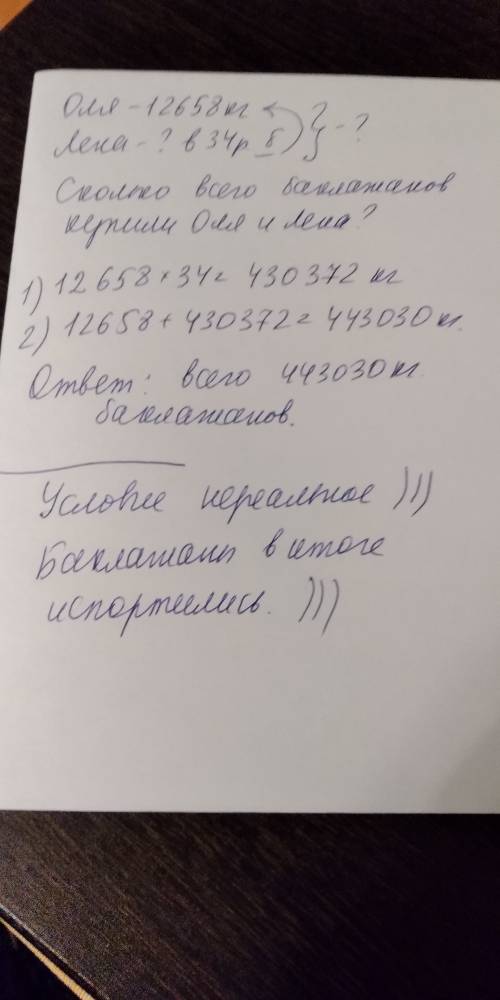 Оля - 12658 кг
Лена - ? в 34 р б } - ?
Сколько всего баклажанов
купили Оля и Лена?
1) 12658 × 34 = 430372 кг
2) 12658 + 430372 = 443030 кг.
Ответ: всего 443030 кг
баклажанов.
Условие нереальное )))
Баклажаны в итоге
испортились. )))